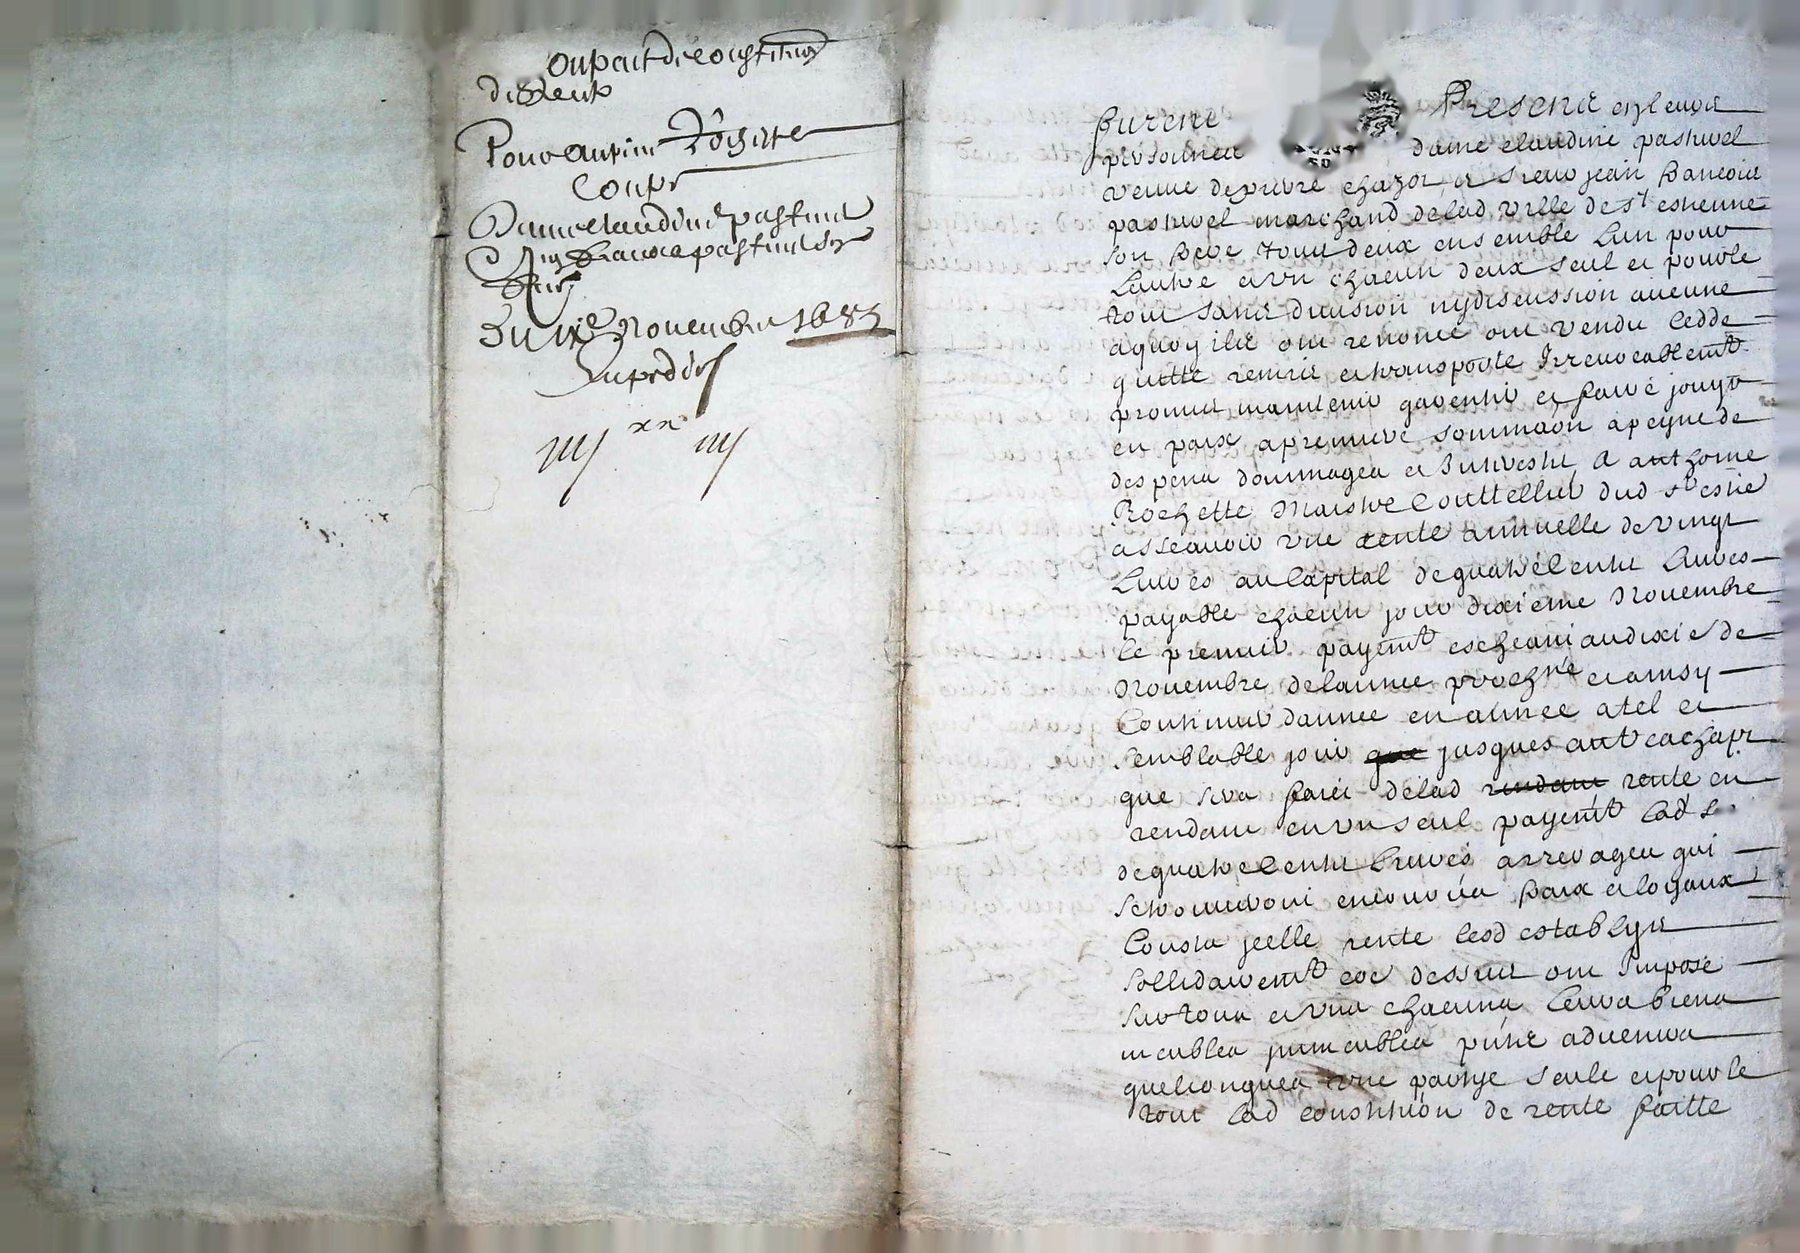 de rente
Pour anthoine Rochette
Contre
Dame claudine pasturel
Sr jean francois pasturel son
frere
Du ixe Novembre 1683
Expedié
iiij xx iiij
furent Presents en leurs
personnes dame claudine pasturel
veuve de pierre chazot et sieur jean francois
pasturel marchand delad ville de st estienne
son frere tous deux ensemble lun pour
lautre et un chacun deux seul et pour le
tout sans division ny discussion aucune
a quoy ils ont renoncé ont vendu cedde
quitte remis et transporte Irrevocablemt
promis maintenir garentir et faire jouyr
en paix a premiere sommaon a peyne de
despens dommages et Interests A anthoine
Rochette Maistre Couttellier dud st estie
asseavoir une rente annuelle de vingt
Livres au Capital de quatre Cents Livres
payable chacun jour dixieme Novembre
Le premier payemt escheant au dixie de
Novembre de lannee prochne et ainsy
Continuer dannee en annee a tel et
semblable jour que jusques au rachapt
que sera faict delad rendant rente en
rendant en un seul payemt lad s
de quatre Cents Livres arrerages qui
se trouveront encourus fraix et loyaux
Cousts jcelle rente lesd establys
sollidairemt coe dessus ont Impose
sur tous et uns chacuns leurs biens
meubles jmmeubles pnts advenirs
quelconques une partye seule et pour le
tout lad constition de rente faitte